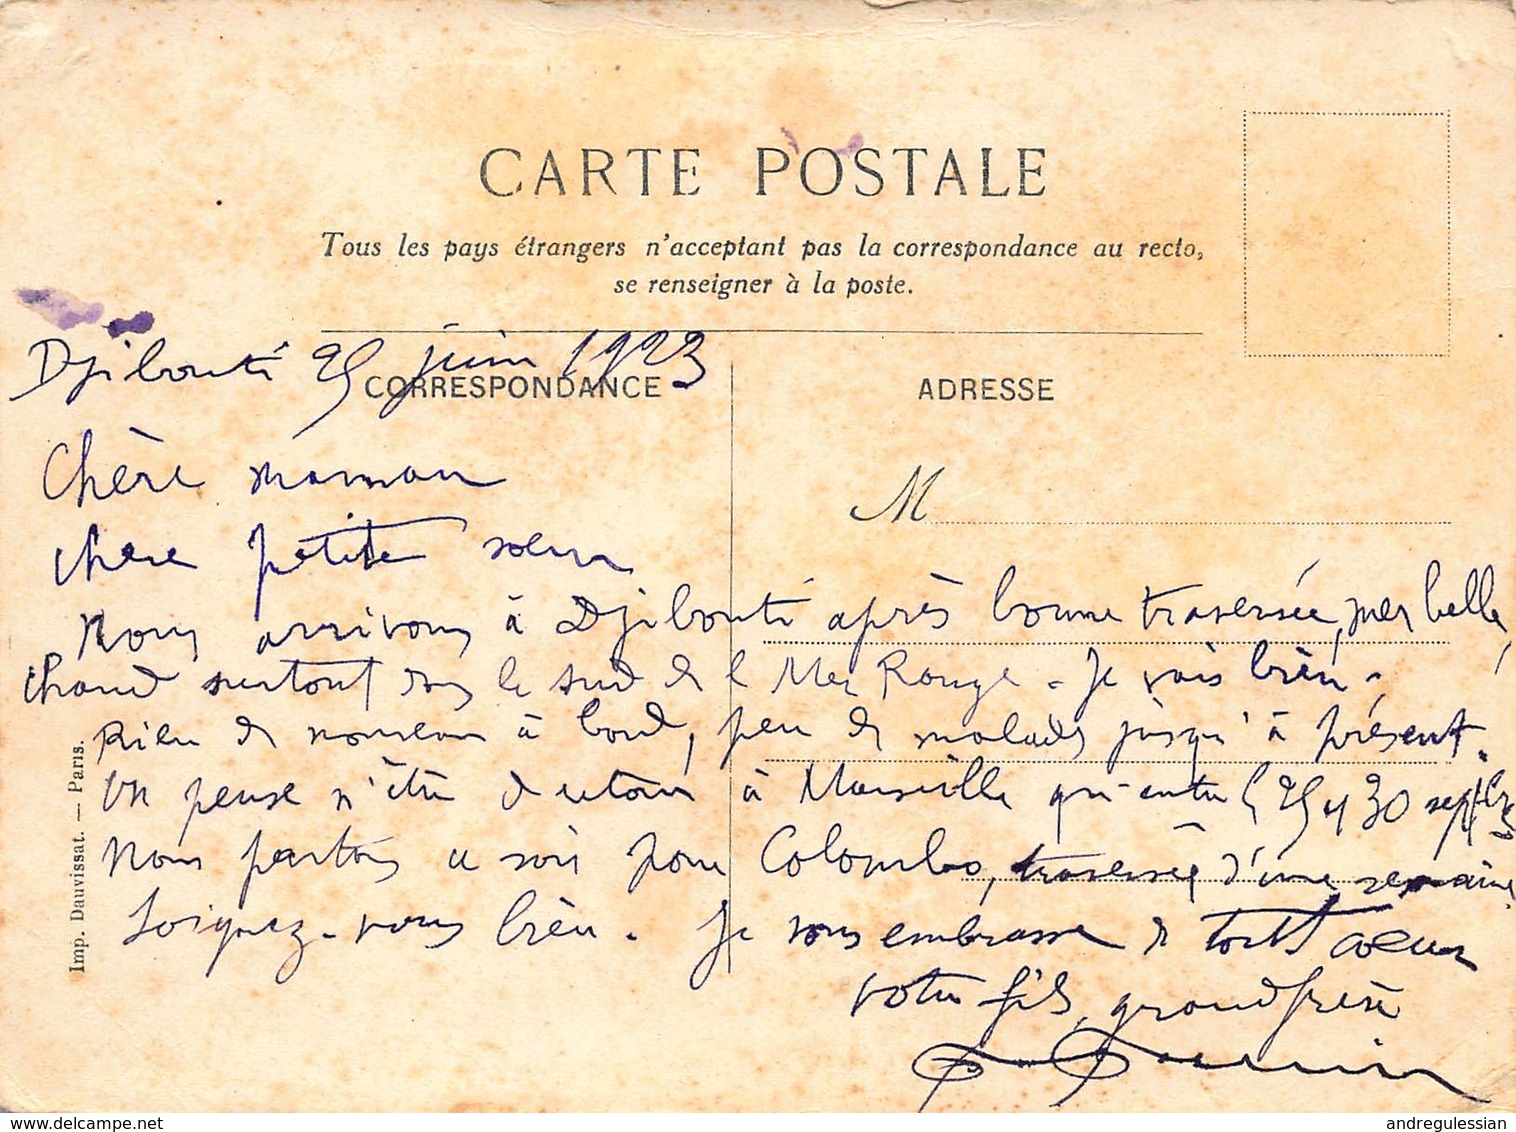 CARTE POSTALE
Tous les pays étrangers n'acceptant pas la correspondance au recto,
se renseigner à la poste.
Djibouti 25 juin 1923
CORRESPONDANCE
ADRESSE
Chère maman
M
chère petite soeur
Nous arrivons à Djibouti après bonne traversée, mer belle,
chaud surtout dans le sud de la Mer Rouge - Je vais bien -
Rien de nouveau à bord, peu de malades jusqu'à présent.
On pense n'être de retour à Marseille qu'entre le 25 et 30 septbre
Nous partons ce soir pour Colombo, traversée d'une semaine
Soignez-vous bien. Je vous embrasse de tout coeur
votre fils, grand frère
Imp. Dauvissat. — Paris.
www.delcampe.net
andregulessian